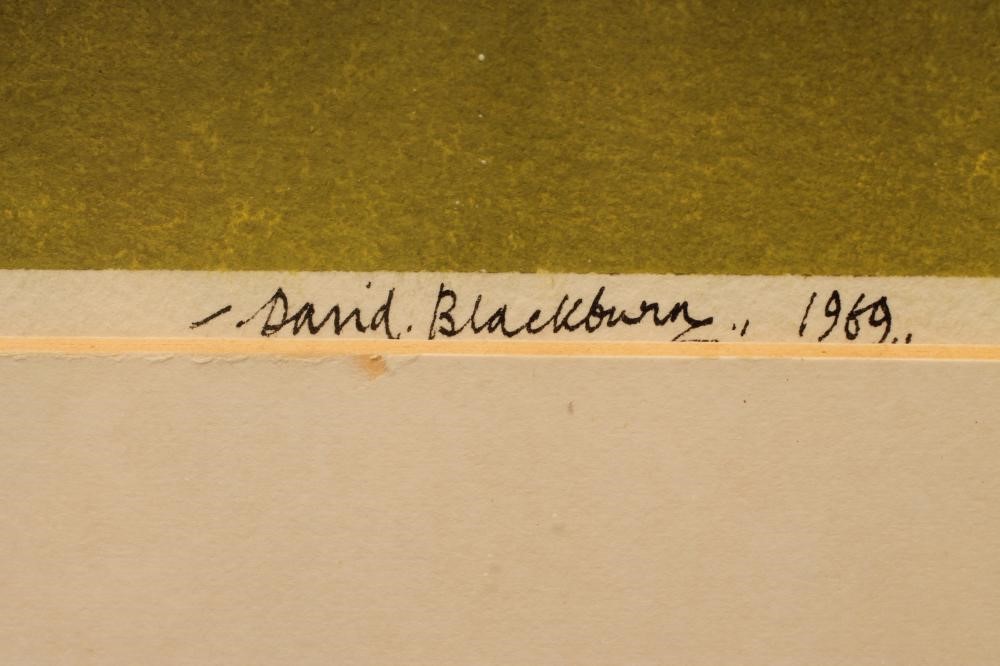 - David. Blackburn., 1969..